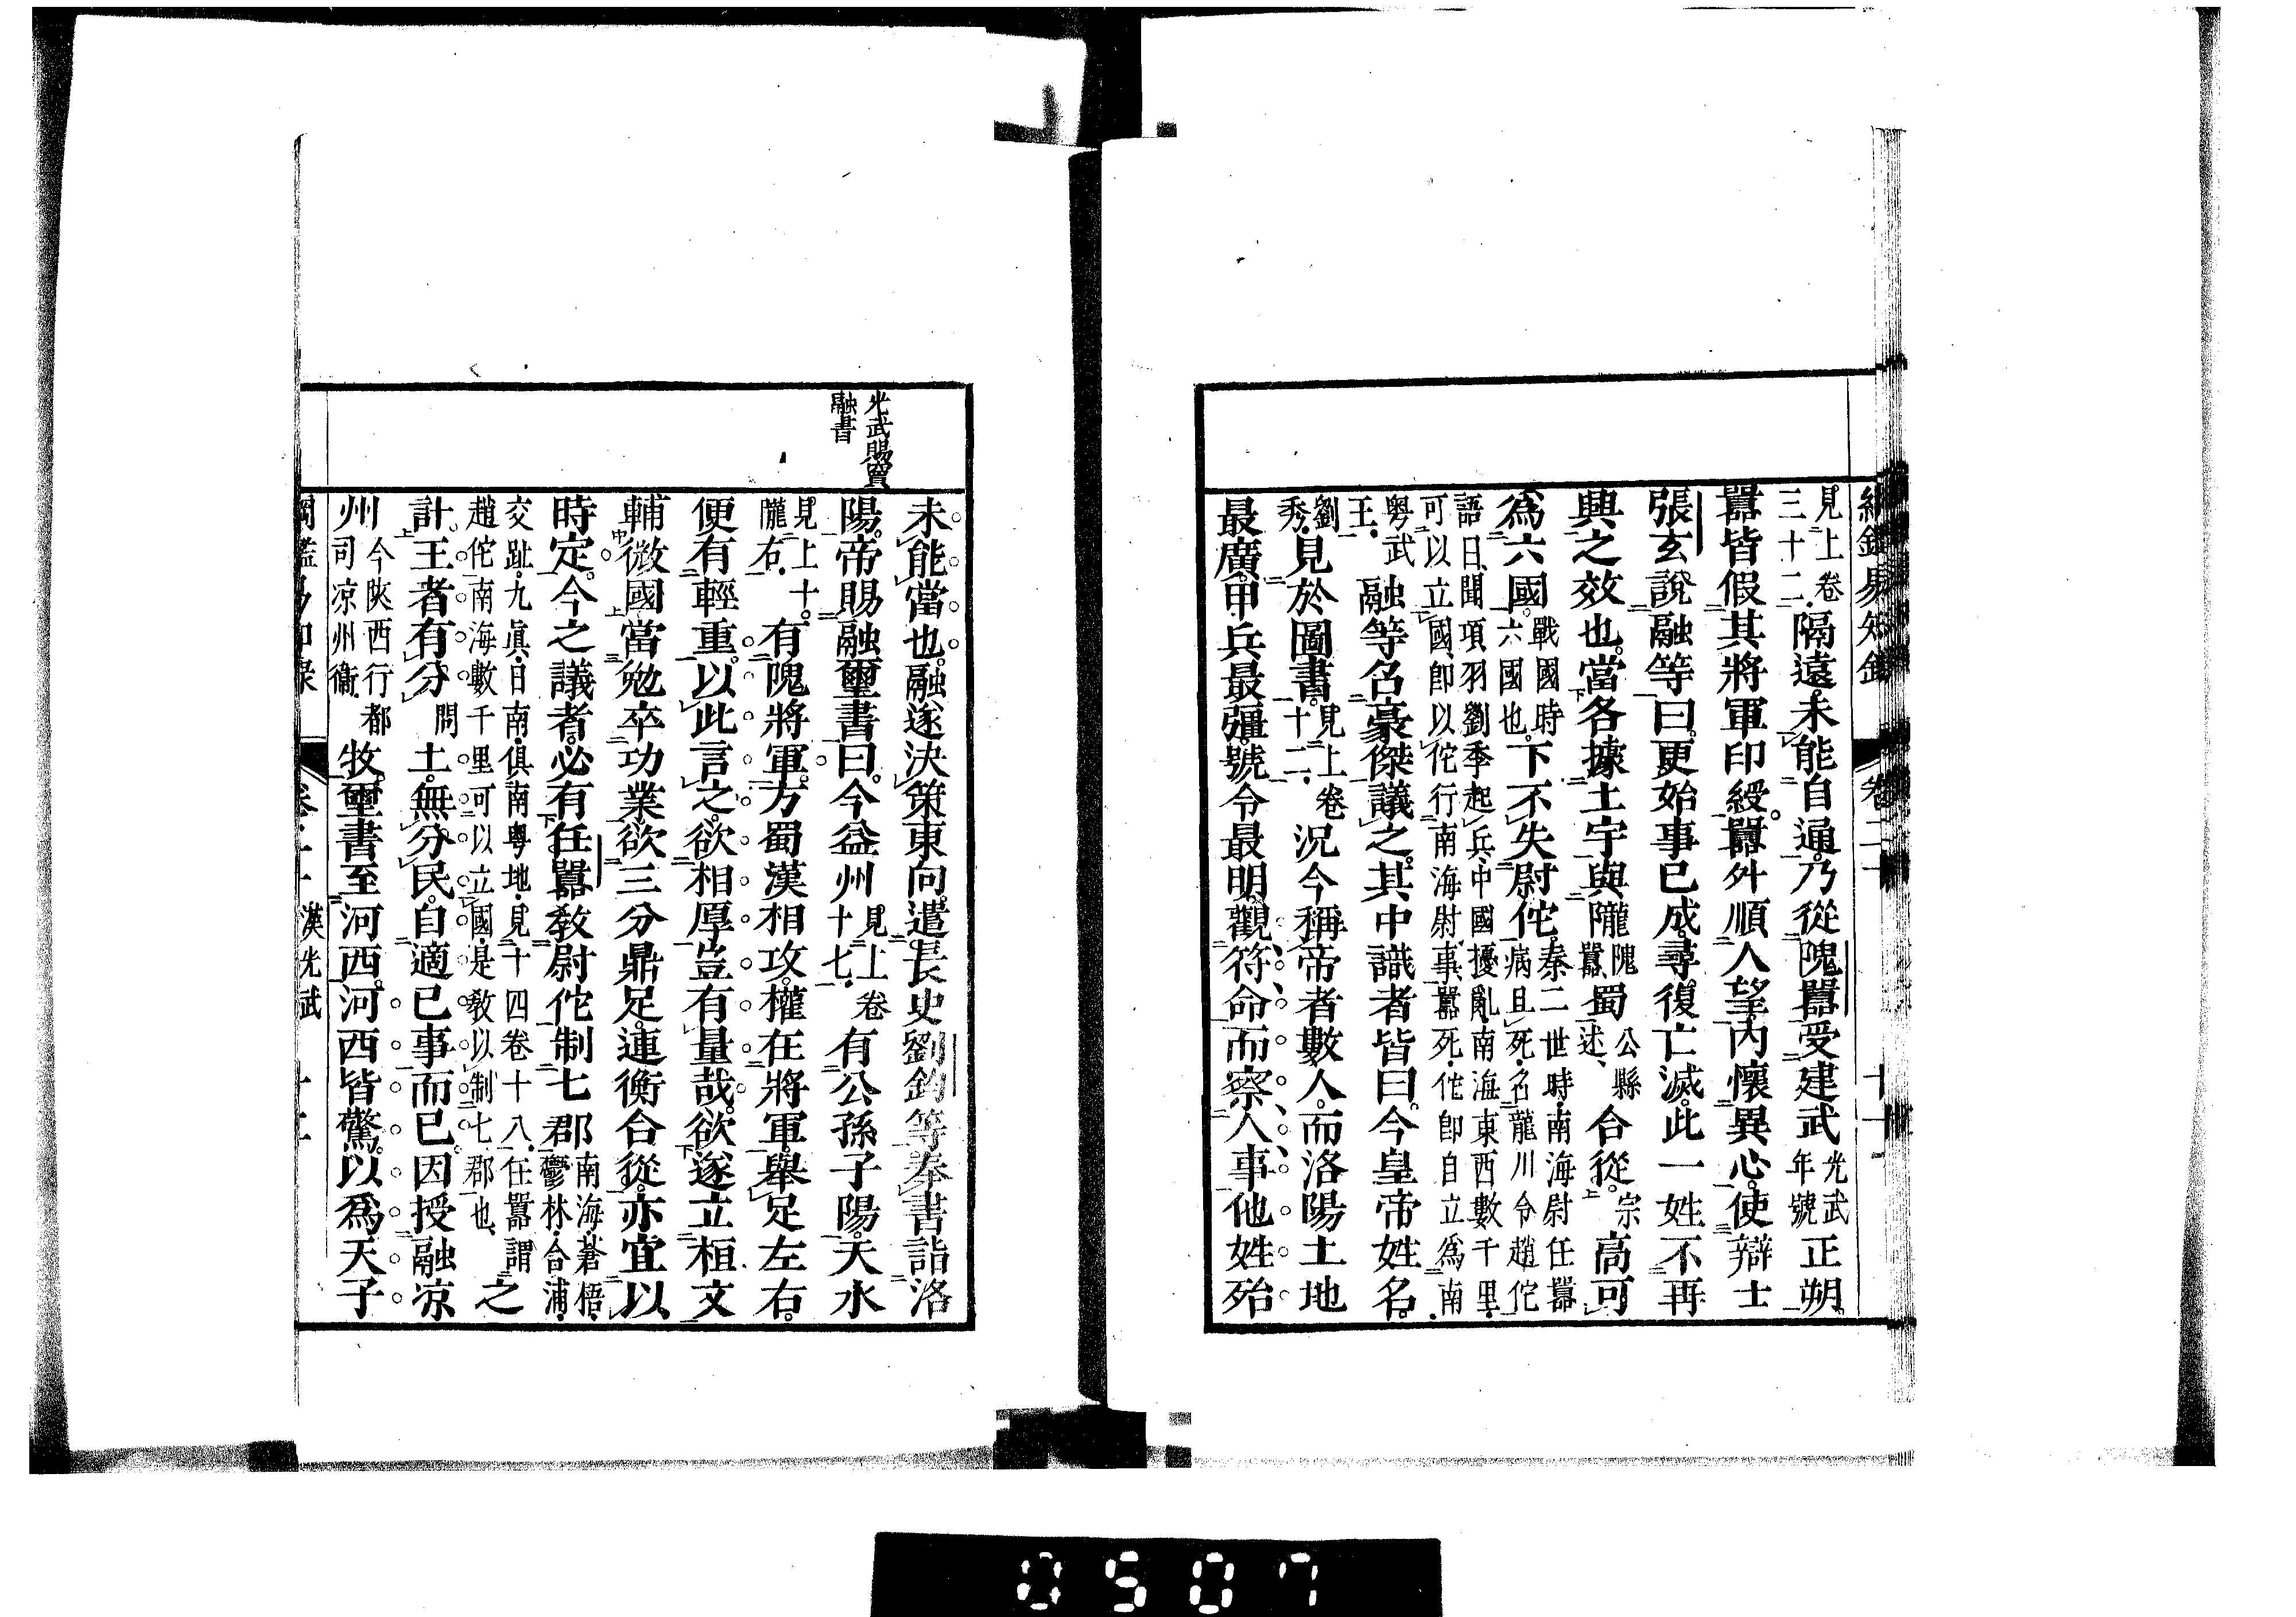 綱鑑易知錄 卷二十 十一
見上卷三十二隔遠。未能自通。乃從隗囂受建武光武年號正朔。
囂皆假其將軍印綬。囂外順人望。內懷異心。使辯士
張玄說融等曰。更始事已成。尋復亡滅。此一姓不再
興之效也。當各據土宇。與隴隗囂、蜀公縣述、合從。宗高可
為六國。戰國時六國也。下不失尉佗。秦二世時、南海尉任囂病且死、名龍川令趙佗
語曰、聞項羽劉季起兵、中國擾亂、南海東西數千里、可以立國、即以佗行南海尉事、囂死、佗即自立為南
粵武王、融等名豪傑議之。其中識者皆曰。今皇帝姓名。
劉秀、見於圖書。見上卷十二、況今稱帝者數人。而洛陽土地
最廣。甲兵最彊。號令最明。觀符命而察人事。他姓殆
光武賜竇融書
未能當也。融遂決策東向。遣長史劉鈞等奉書詣洛
陽。帝賜融璽書曰。今益州見上卷十七、有公孫子陽。天水
見上十。隴右、有隗將軍。方蜀漢相攻。權在將軍。舉足左右。
便有輕重。以此言之。欲相厚豈有量哉。欲遂立桓文
輔微國當勉卒功業。欲三分鼎足。連衡合從。亦宜以
時定。今之議者。必有任囂敎尉佗制七郡南海、蒼梧、鬱林、合浦、
交趾、九眞、日南、俱南粤地、見十四卷十八、任囂謂趙佗南海數千里可以立國、是敎以制七郡也、之
計。王者有分問土。無分民。自適己事而已。因授融涼
州今陝西行都司涼州衞、牧。璽書至河西。河西皆驚。以為天子
綱鑑易知錄 漢光武
0507